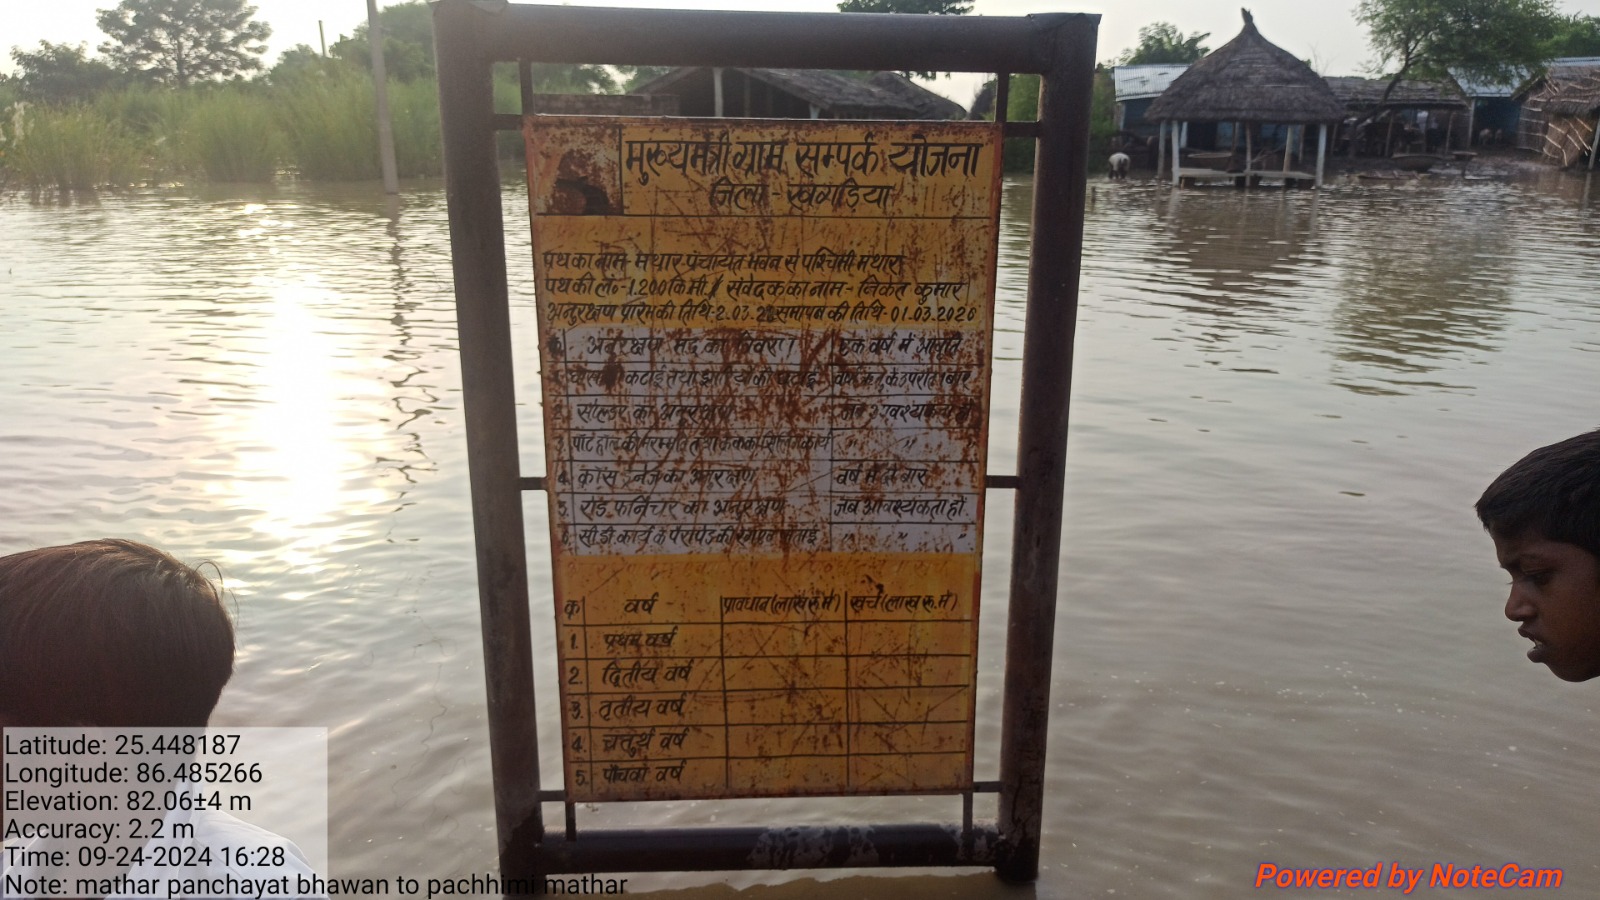 मुख्यमंत्री ग्राम सम्पर्क योजना
जिला - खगड़िया
पथ का नाम- मथार पंचायत भवन से पश्चिमी मथार
पथ की लं०-1.200 कि.मी. / संवेदक का नाम- निकेत कुमार
अनुरक्षण प्रारंभ की तिथि-2.03. समापन की तिथि- 01.03.2020
अनुरक्षण मद का विवरण एक वर्ष में
कटाई तथा झाड़ियों की वर्षा ऋतु के उपरांत 1 बार
2. सोल्डर का अनुरक्षण जब आवश्यकता हो
3. पॉट होल की मरम्मति तथा " "
4. क्रॉस ड्रेनेज का अनुरक्षण वर्ष में दो बार
5. रोड फर्निचर का अनुरक्षण जब आवश्यकता हो.
6. सी.डी. कार्य के पैरापेट की " "
क्र वर्ष प्रावधान (लाख रू. में) खर्च (लाख रू. में)
1. प्रथम वर्ष
2. द्वितीय वर्ष
3. तृतीय वर्ष
4. चतुर्थ वर्ष
5. पाँचवां वर्ष
Latitude: 25.448187
Longitude: 86.485266
Elevation: 82.06±4 m
Accuracy: 2.2 m
Time: 09-24-2024 16:28
Note: mathar panchayat bhawan to pachhimi mathar
Powered by NoteCam